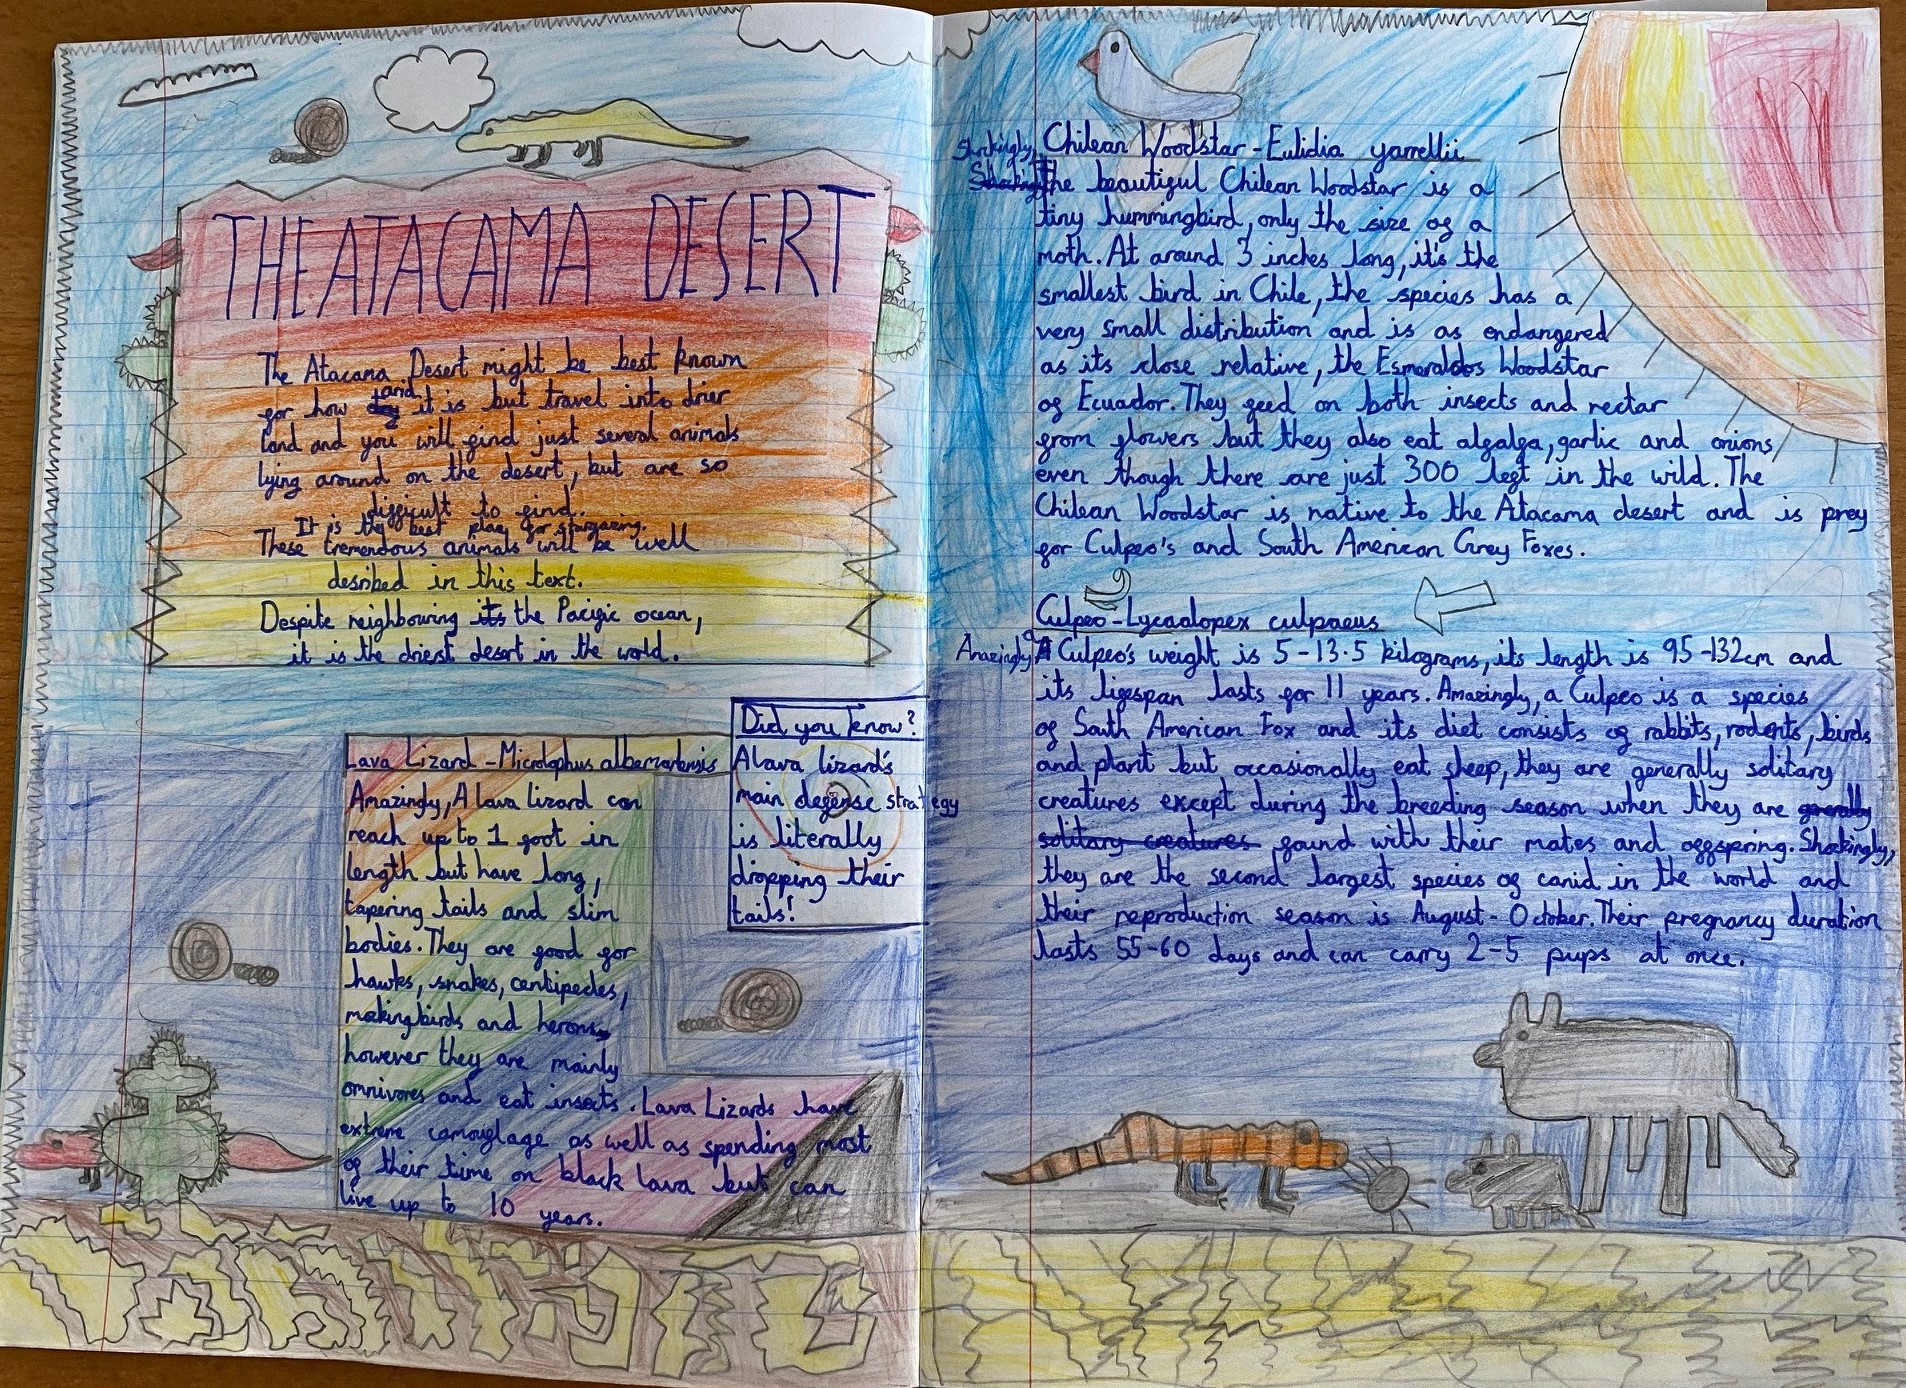 THE ATACAMA DESERT
The Atacama Desert might be best known
for how arid it is but travel into drier
land and you will find just several animals
lying around on the desert, but are so
difficult to find.
It is the best place for stargazing.
These tremendous animals will be well
desribed in this text.
Despite neighbouring its the Pacific ocean,
it is the driest desert in the world.
Lava Lizard - Microlophus albemarlensis
Amazingly, A lava lizard can
reach up to 1 foot in
length but have long,
tapering tails and slim
bodies. They are good for
hawks, snakes, centipedes,
mockingbirds and herons,
however they are mainly
omnivores and eat insects. Lava Lizards have
extreme camouflage as well as spending most
of their time on black lava but can
live up to 10 years.
Did you know?
A lava lizard's
main defense strategy
is literally
dropping their
tails!
Chilean Woodstar - Eulidia yarrellii
Shockingly, the beautiful Chilean Woodstar is a
tiny hummingbird, only the size of a
moth. At around 3 inches long, it's the
smallest bird in Chile, the species has a
very small distribution and is as endangered
as its close relative, the Esmeraldos Woodstar
of Ecuador. They feed on both insects and nectar
from flowers but they also eat algalga, garlic and onions
even though there are just 300 left in the wild. The
Chilean Woodstar is native to the Atacama desert and is prey
for Culpeo's and South American Grey Foxes.
Culpeo - Lycaalopex culpaeus
Amazingly, a Culpeo's weight is 5-13.5 kilograms, its length is 95-132cm and
its lifespan lasts for 11 years. Amazingly, a Culpeo is a species
of South American Fox and its diet consists of rabbits, rodents, birds
and plant but occasionally eat sheep, they are generally solitary
creatures except during the breeding season when they are generally
solitary creatures found with their mates and offspring. Shockingly,
they are the second largest species of canid in the world and
their reproduction season is August - October. Their pregnancy duration
lasts 55-60 days and can carry 2-5 pups at once.